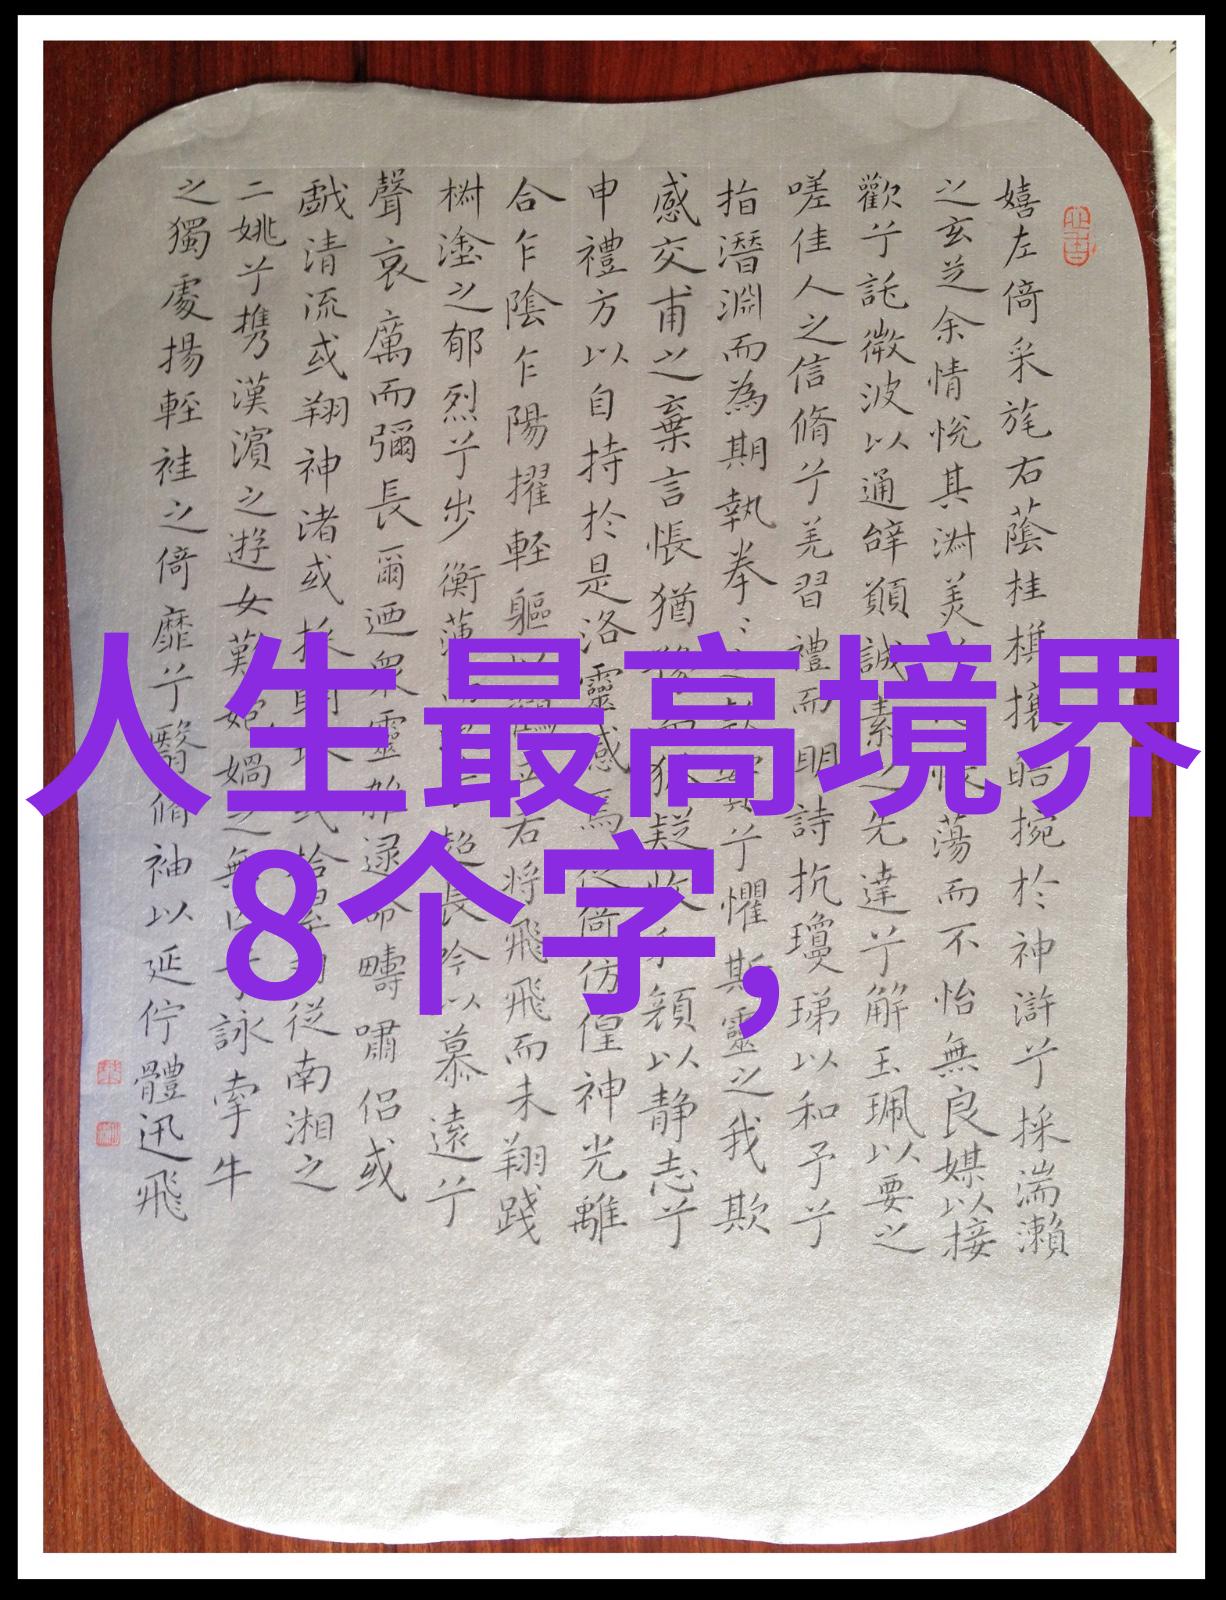 人生最高境界
8个字,
嬉左倚采旄右蔭桂旗攘皓捥於神滸兮採湍瀨
之玄芝余情悅其淑美蕩而不怡無良媒以接
歡兮託微波以通辭願誠素之先達兮解玉珮以要之
嗟佳人之信脩兮羌習禮而明詩抗瓊珶以和予兮
指潛淵而為期執拳〻之款實兮懼斯靈之我欺
感交甫之棄言悵猶豫而狐疑收和顏以静志兮
申禮方以自持於是洛靈感焉徙倚仿偟神光離
合乍陰乍陽擢輕軀以鶴立若将飛飛而未翔踐
樹塗之郁烈兮步衡薄而超長吟以慕遠兮
聲哀厲而彌長爾迺眾靈雜逯命疇嘯侶或
戲清流或翔神渚或採明珠或拾翠羽從南湘之
二姚兮攜漢濱之遊女歎媧之無匹兮詠牽牛
之獨處揚輕袿之倚靡兮翳脩袖以延佇體迅飛